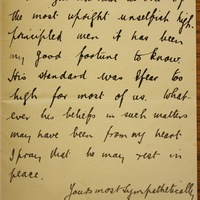 the most upright unselfish high
principled men it has been
my good fortune to know.
His standard was far too
high for most of us. What-
ever his beliefs in such matters
may have been from my heart
I pray that he may rest in
peace.
Yours most sympathetically